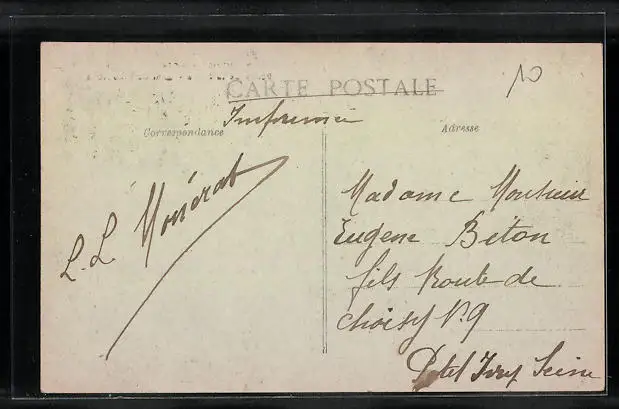 10
CARTE POSTALE
Imprimée
Correspondance
Adresse
L. L. Monérat
Madame Monsieur
Eugene Beton
fils Route de
choisy
Ivry Seine